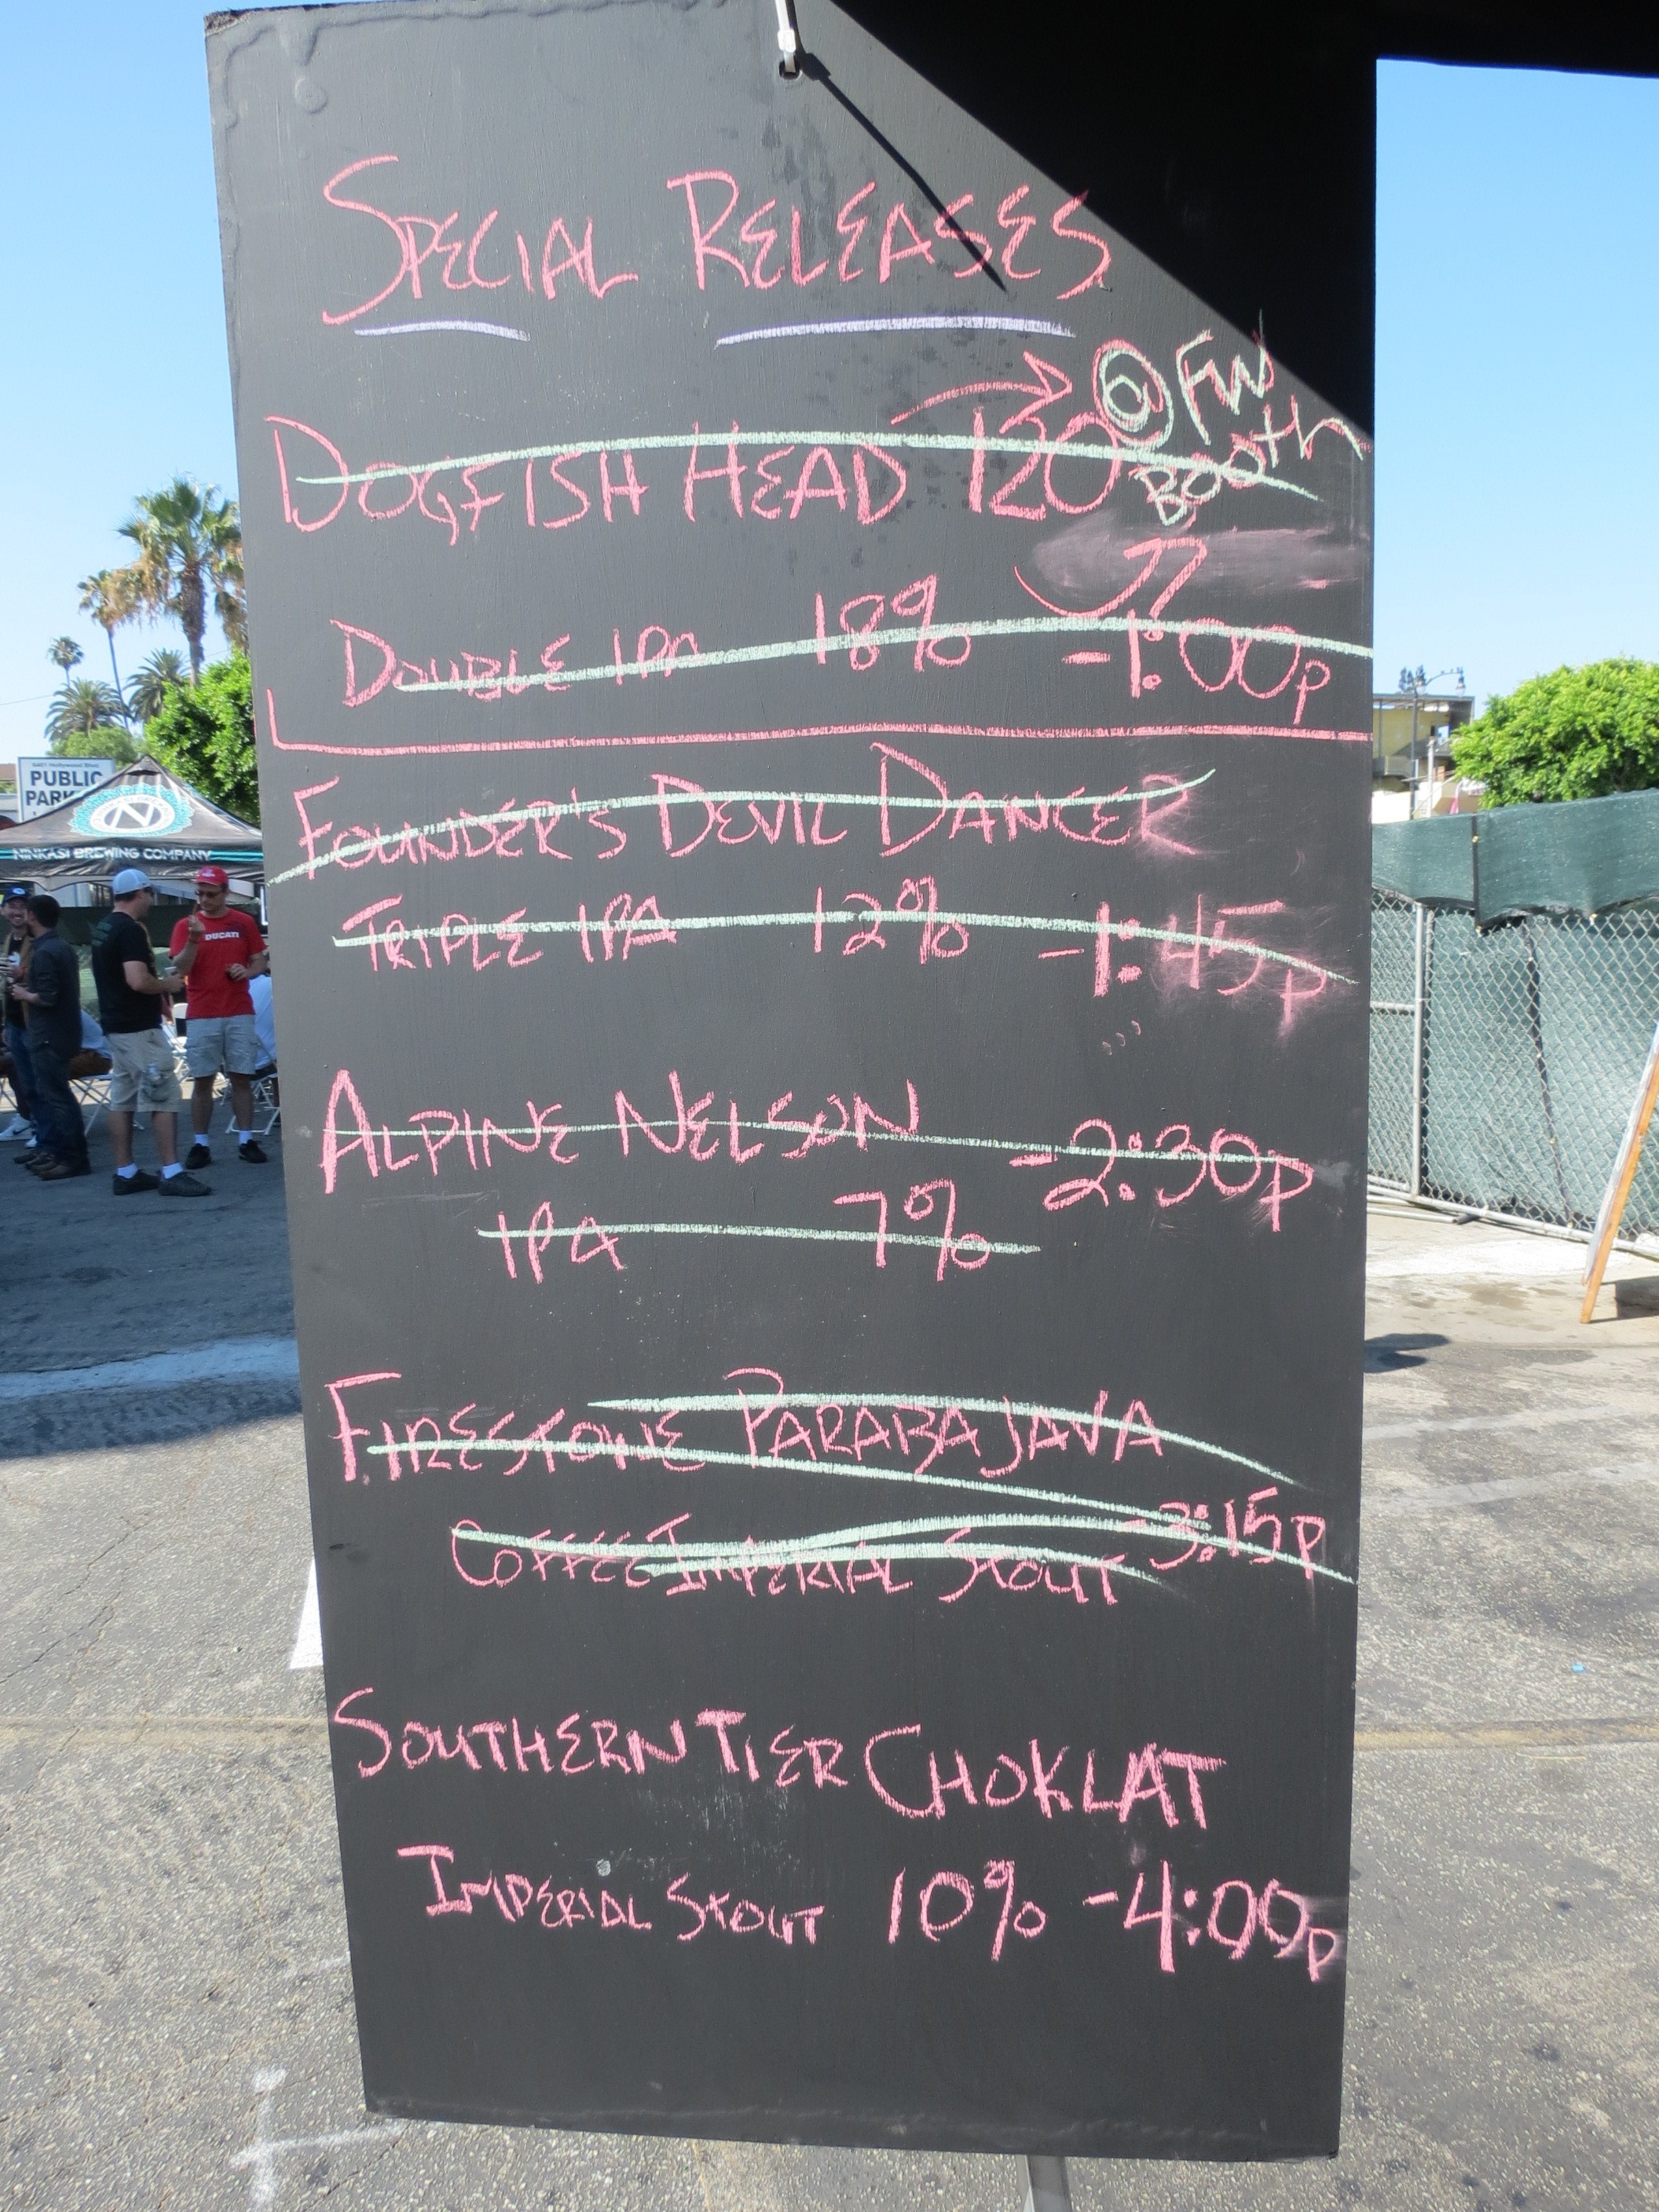 SPECIAL RELEASES
@ FW
BOOTH
DOGFISH HEAD 120
DOUBLE IPA 18% -1:00p
FOUNDER'S DEVIL DANCER
TRIPLE IPA 12% -1:45p
ALPINE NELSON -2:30p
IPA 7%
FIRESTONE PARABAJAVA
COFFEE IMPERIAL STOUT -3:15p
SOUTHERN TIER CHOKLAT
IMPERIAL STOUT 10% -4:00p
PUBLIC
N
NINKASI BREWING COMPANY
DUCATI